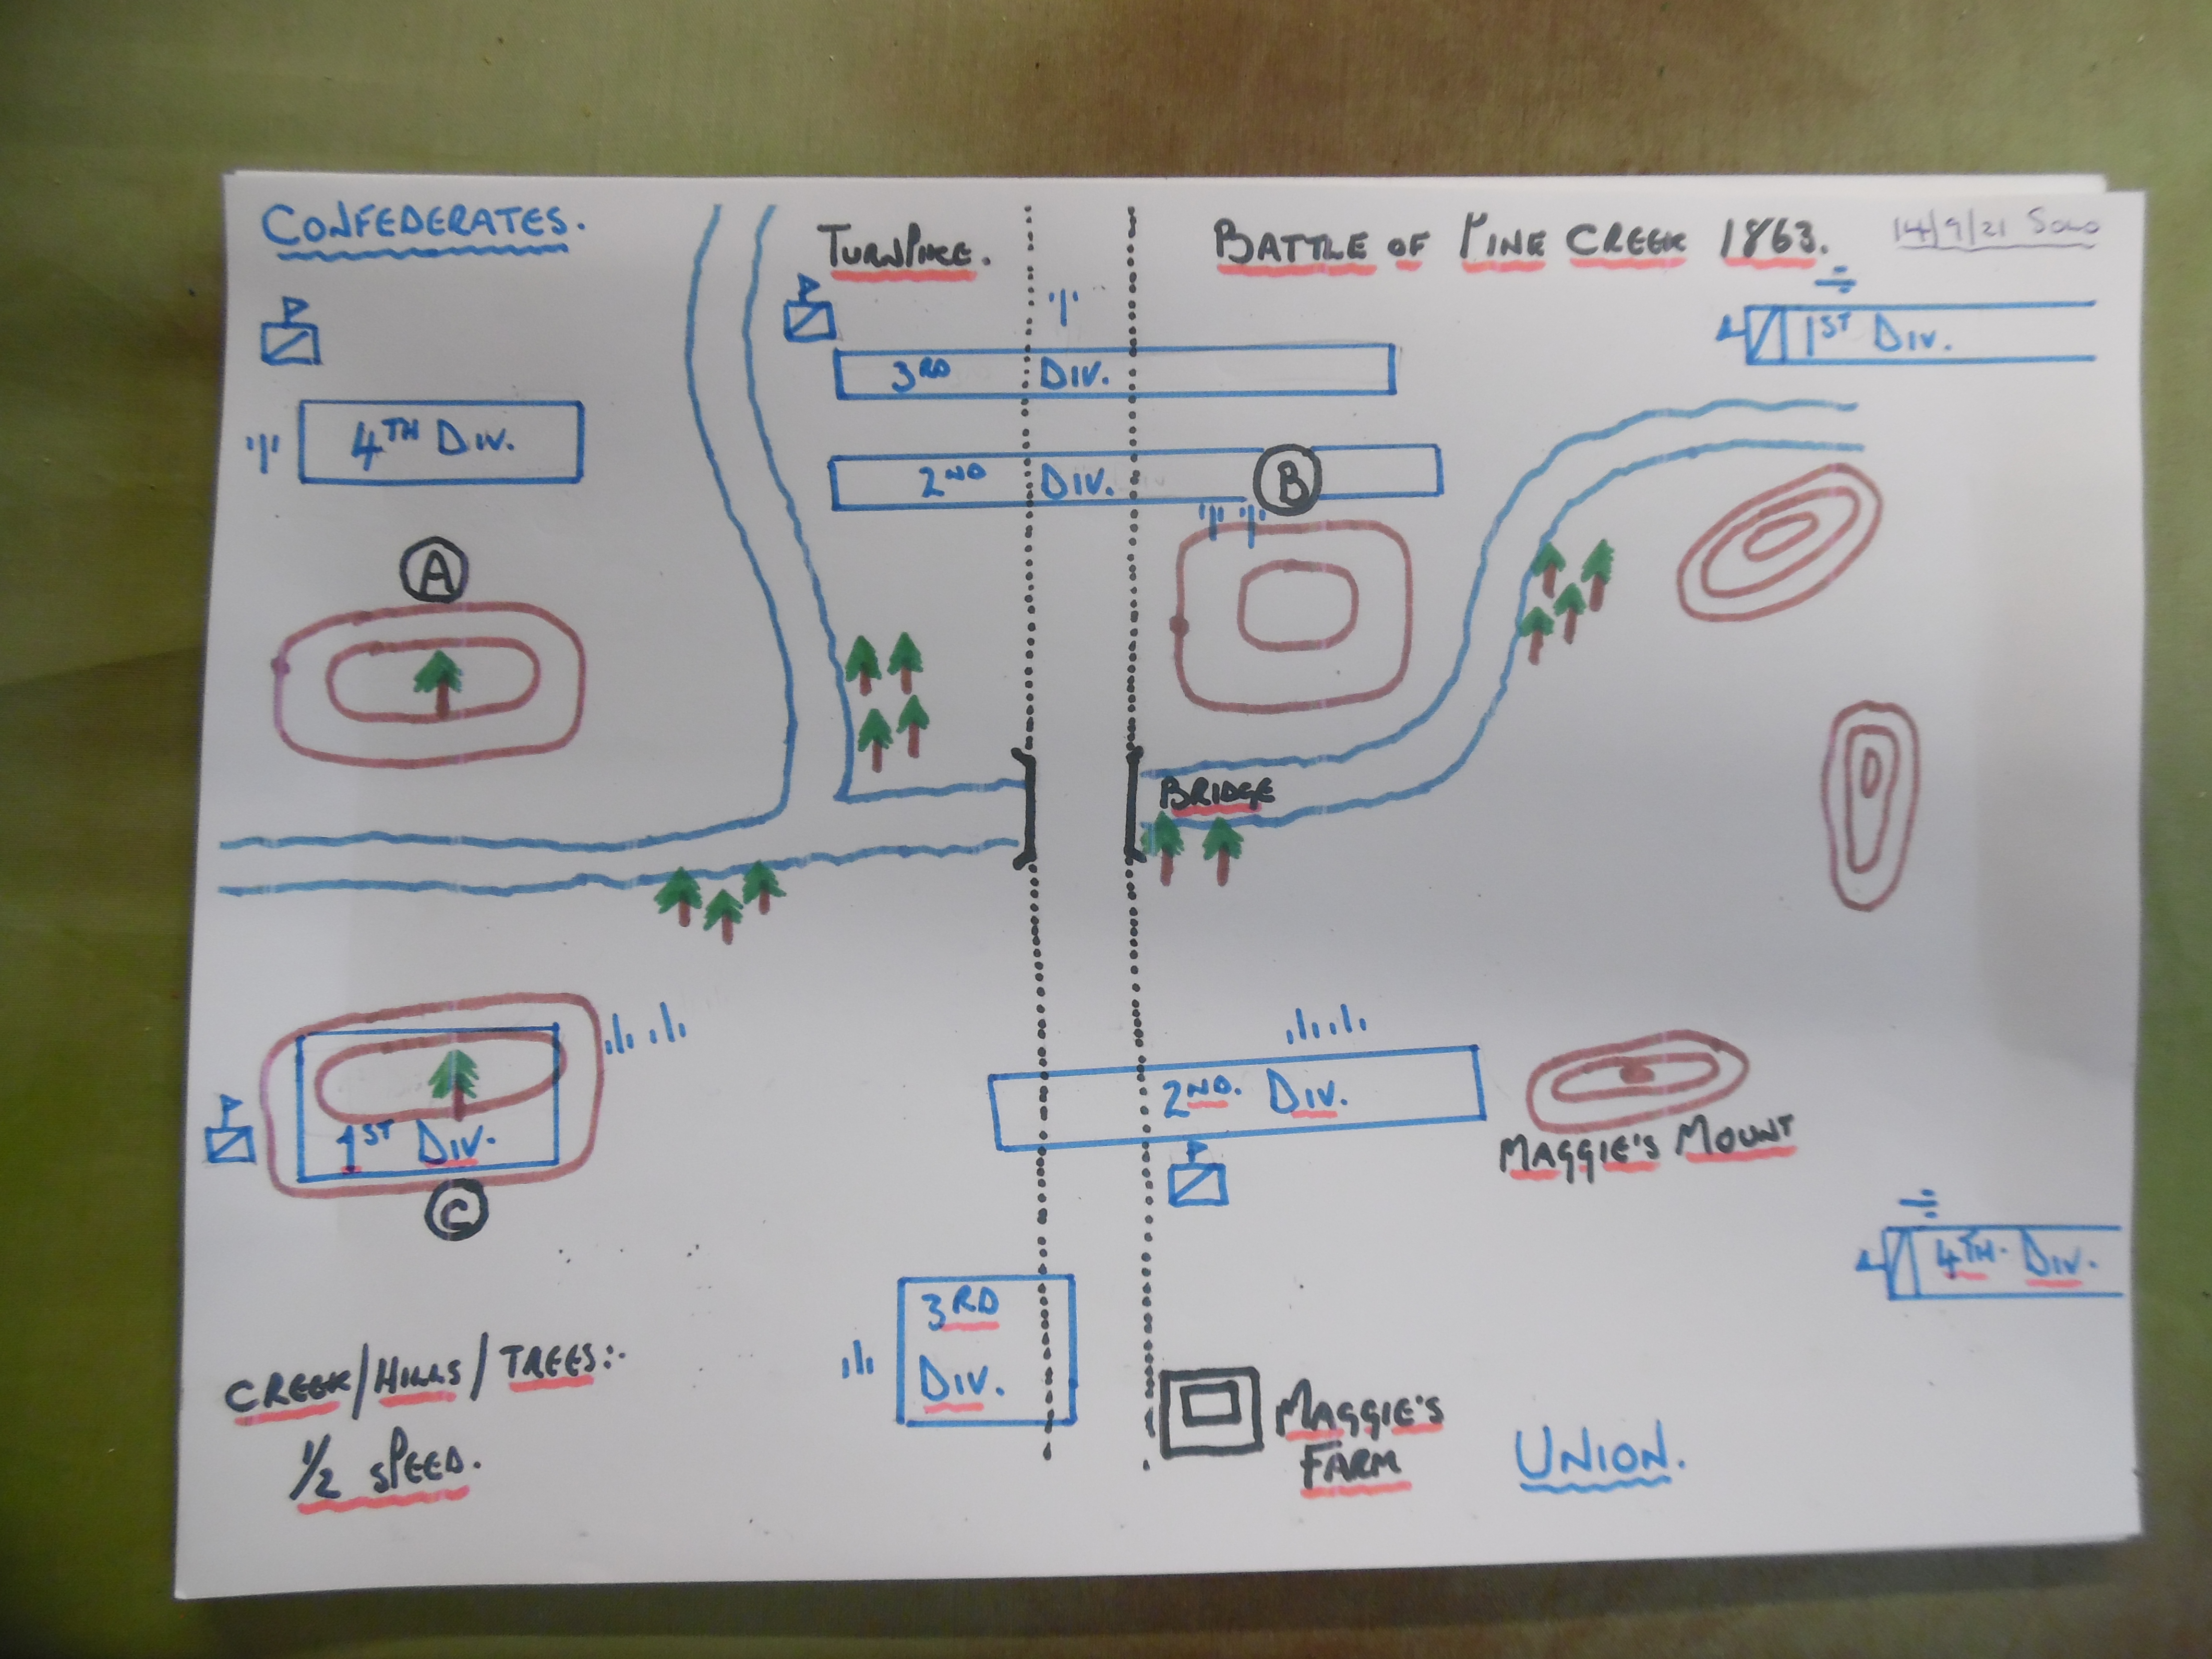 CONFEDERATES.
TURNPIKE.
BATTLE OF PINE CREEK 1863.
14/9/21 SOLO
1ST DIV.
3RD DIV.
4TH DIV.
2ND DIV.
B
A
BRIDGE
2ND. DIV.
1ST DIV.
MAGGIE'S MOUNT
C
4TH. DIV.
3RD
DIV.
CREEK/HILLS/TREES:-
1/2 SPEED.
MAGGIE'S
FARM
UNION.